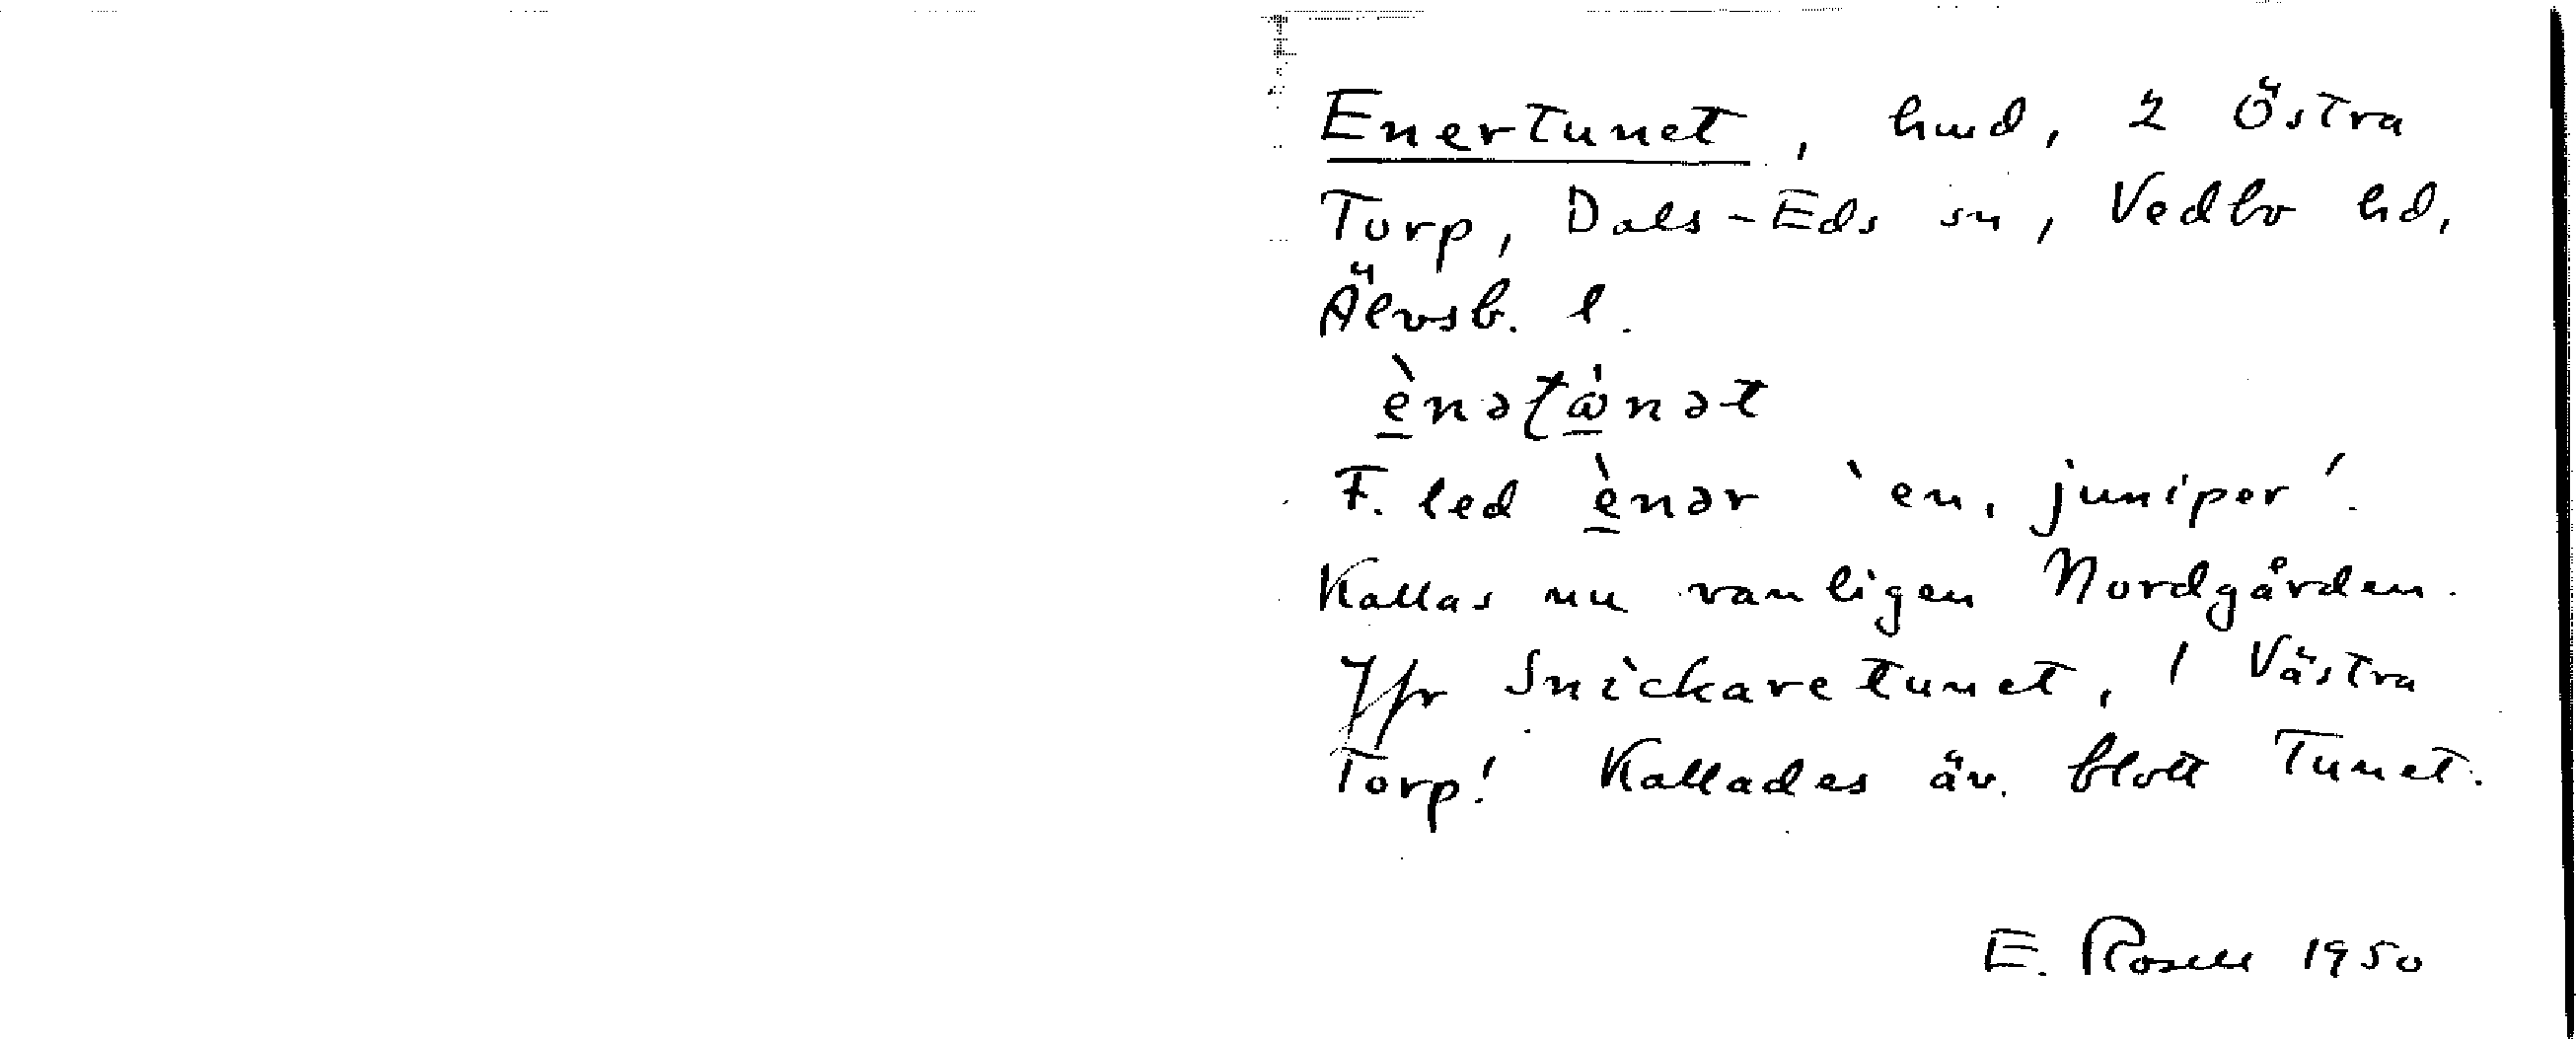 Enertunet, hmd, 2 Östra
Torp, Dals-Eds sn, Vedbo hd,
Älvsb. l.
è̱nətὼ̱nət
F. led è̱nər `en, juniper´.
Kallas nu vanligen Nordgården.
Jfr Snickaretunet, 1 Västra
Torp! Kallades äv. blott Tunet.
E. Rosell 1950